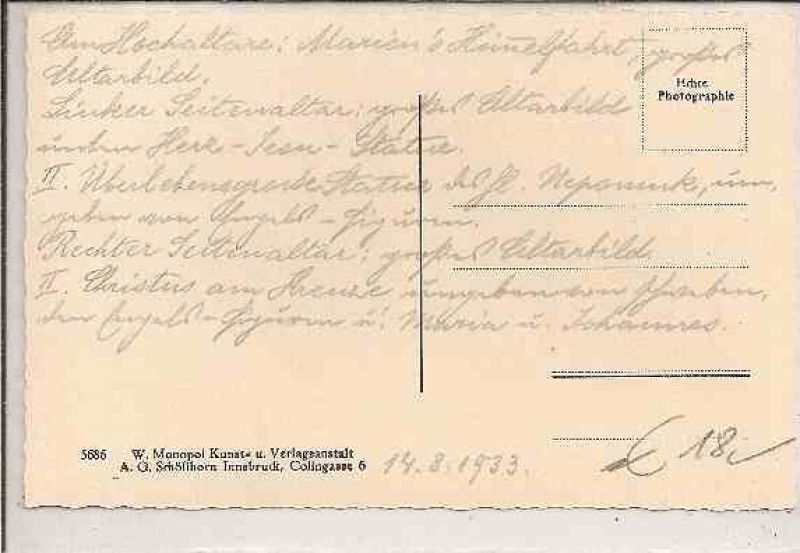 Am Hochaltare: Marien's Himmelfahrt, großes
Altarbild.
Linker Seitenaltar: großes Altarbild
unten Herz-Jesu-Statue.
II. Überlebensgroße Statue des hl. Nepomuk, um,
geben von Engels-Figuren.
Rechter Seitenaltar: großes Altarbild
II. Christus am Kreuze umgeben von schweben,
den Engels-Figuren u. Maria u. Johannes.
Echte
Photographie
5686 W. Monopol Kunst- u. Verlagsanstalt
A. G. Schöllhorn Innsbruck, Colingasse 6
14.8.1933.
18,-